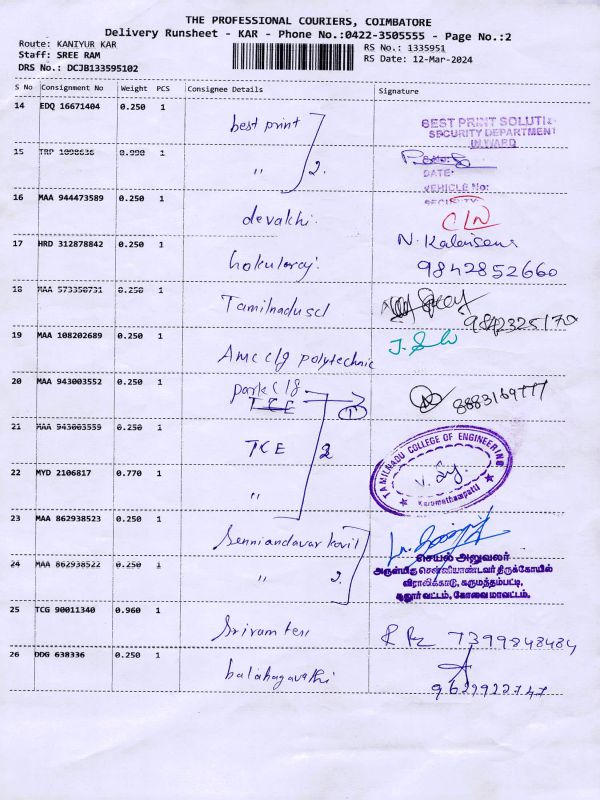 THE PROFESSIONAL COURIERS, COIMBATORE
Delivery Runsheet - KAR - Phone No.:0422-3505555 - Page No.:2
Route: KANIYUR KAR
RS No.: 1335951
Staff: SREE RAM
RS Date: 12-Mar-2024
DRS No.: DCJB133595102
S No Consignment No Weight PCS Consignee Details Signature
14 EDQ 16671404 0.250 1
best print
BEST PRINT SOLUTI
SECURITY DEPARTMENT
INWARD
15 TRP 1098636 0.990 1
" 2.
DATE:
VEHICLE No:
16 MAA 944473589 0.250 1
SECURITY:
devakhi.
17 HRD 312878842 0.250 1
gokulraj.
9842852660
18 MAA 573350731 0.250 1
Tamilnadu
9842325170
19 MAA 108202689 0.250 1
Amc clg polytechnic
20 MAA 943003552 0.250 1
park clg
TCE 1
8883169777
21 MAA 943003559 0.250 1
TCE 2
TAMILNADU COLLEGE OF ENGINEERING
Karumathampatti
22 MYD 2106817 0.770 1
"
23 MAA 862938523 0.250 1
Senniandavar kovil
24 MAA 862938522 0.250 1
" 2.
செயல் அலுவலர்
அருள்மிகு சென்னியாண்டவர் திருக்கோயில்
விராலிக்காடு, கருமத்தம்பட்டி,
சூலூர் வட்டம், கோவை மாவட்டம்.
25 TCG 90011340 0.960 1
Sriram
7399848484
26 DDG 638336 0.250 1
balabagavathi
9629922747